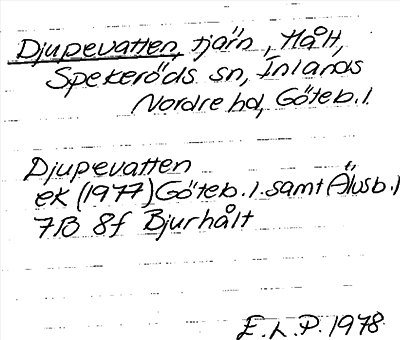 Djupevatten, tjärn, Hålt,
Spekeröds sn, Inlands
Nordre hd, Göteb.l.
Djupevatten
ek (1977) Göteb.l. samt Älvsb.l
7B 8f Bjurhålt
E.L.P. 1978